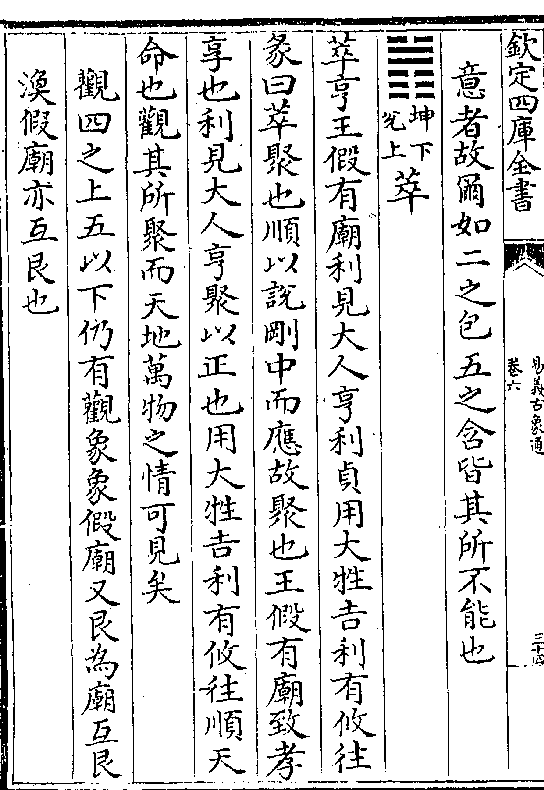 欽定四庫全書
易義古象通
卷六
三十四
意者故爾如二之包五之含皆其所不能也
䷬坤下兌上萃
萃亨王假有廟利見大人亨利貞用大牲吉利有攸往
彖曰萃聚也順以說剛中而應故聚也王假有廟致孝
享也利見大人亨聚以正也用大牲吉利有攸往順天
命也觀其所聚而天地萬物之情可見矣
觀四之上五以下仍有觀象象假廟又艮為廟互艮
渙假廟亦互艮也